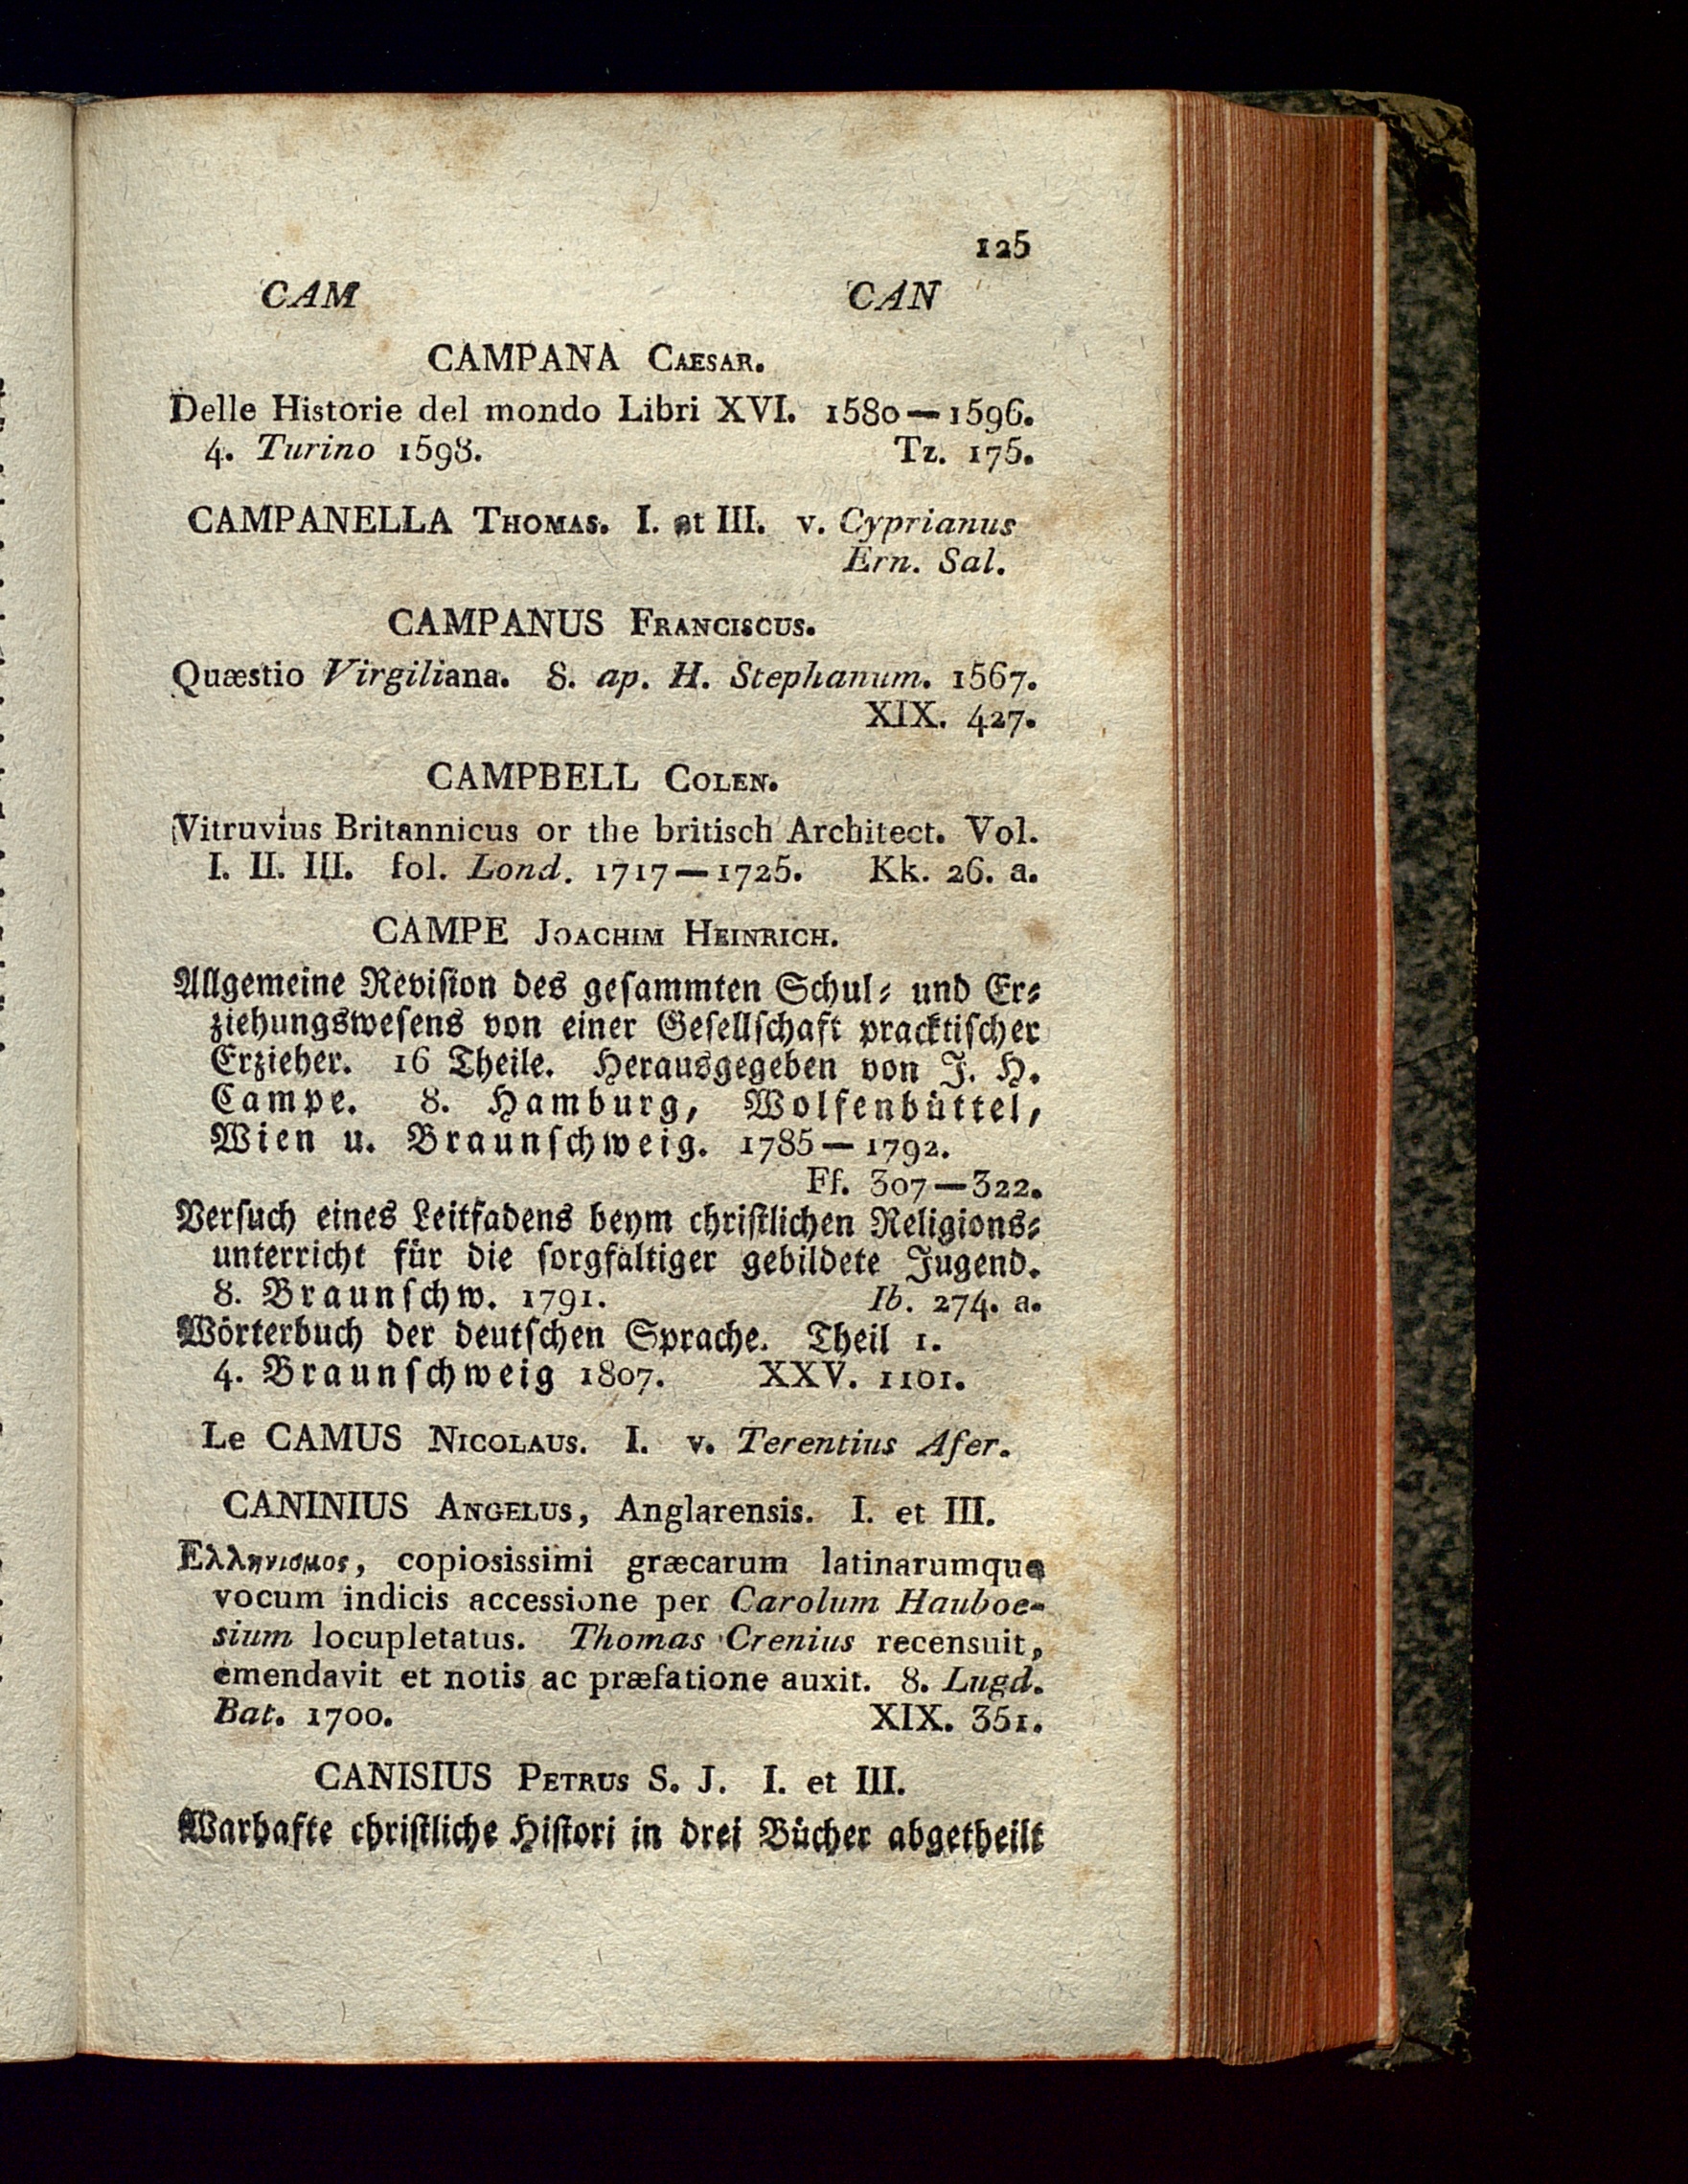 125
CAM CAN
CAMPANA CAESAR.
Delle Historie del mondo Libri XVI. 1580—1596.
4. Turino 1598. Tz. 175.
CAMPANELLA THOMAS. I. et III. v. Cyprianus
Ern. Sal.
CAMPANUS FRANCISCUS.
Quæstio Virgiliana. 8. ap. H. Stephanum. 1567.
XIX. 427.
CAMPBELL COLEN.
Vitruvius Britannicus or the britisch Architect. Vol.
I. II. III. fol. Lond. 1717—1725. Kk. 26. a.
CAMPE JOACHIM HEINRICH.
Allgemeine Reviſion des geſammten Schul⸗ und Er⸗
ziehungsweſens von einer Geſellſchaft pracktiſcher
Erzieher. 16 Theile. Herausgegeben von J. H.
Campe. 8. Hamburg, Wolfenbüttel,
Wien u. Braunſchweig. 1785—1792.
Ff. 307—322.
Verſuch eines Leitfadens beym chriſtlichen Religions⸗
unterricht für die ſorgfältiger gebildete Jugend.
8. Braunſchw. 1791. Ib. 274. a.
Wörterbuch der deutſchen Sprache. Theil 1.
4. Braunſchweig 1807. XXV. 1101.
Le CAMUS NICOLAUS. I. v. Terentius Afer.
CANINIUS ANGELUS, Anglarensis. I. et III.
Ελληνισμος, copiosissimi græcarum latinarumque
vocum indicis accessione per Carolum Hauboe-
sium locupletatus. Thomas Crenius recensuit,
emendavit et notis ac præfatione auxit. 8. Lugd.
Bat. 1700. XIX. 351.
CANISIUS PETRUS S. J. I. et III.
Warhafte chriſtliche Hiſtori in drei Bücher abgetheilt